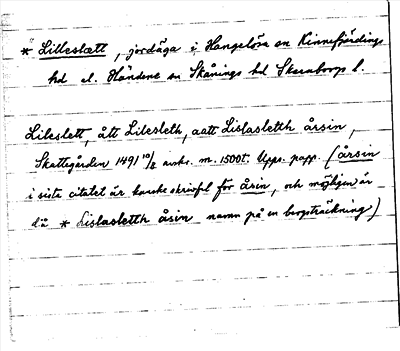 * Lilleslætt, jordäga i Hangelösa sn Kinnefjärdings
hd el. Händene sn Skånings hd Skaraborgs l.
Lileslett, ått Lilesleth, aatt Lislasletth årsin,
Skattegården 1491 10/2 avskr. m. 1500t. Upps. papp. (årsin
i sista citatet är kanske skrivfel för åsin, och möjligen är
då * Lislasletth åsin namn på en bergsträckning)